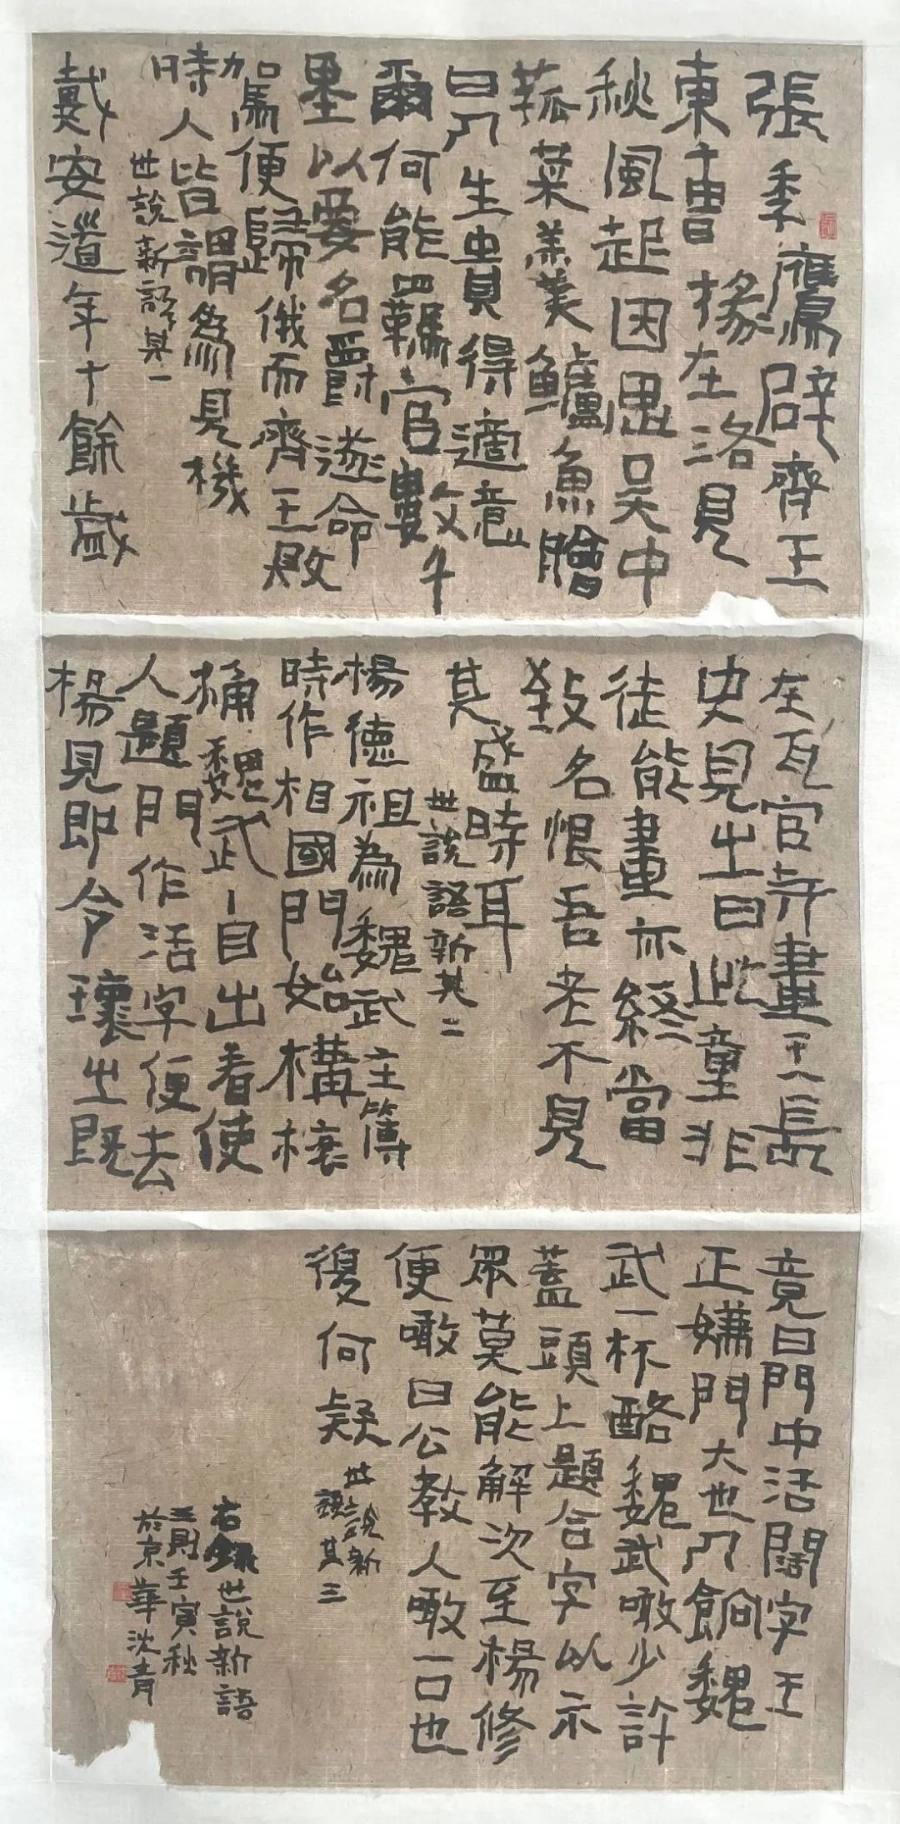 張季鷹辟齊王
東曹掾在洛見
秋風起因思吳中
菰菜羹鱸魚膾
曰人生貴得適意
爾何能羈官數千
里以要名爵遂命
駕便歸俄而齊王敗
時人皆謂為見機
世說新語其一
戴安道年十餘歲
在瓦官寺畫王長
史見之曰此童非
徒能畫亦終當
致名恨吾老不見
其盛時耳
世說語新其二
楊德祖為魏武主簿
時作相國門始構榱
桷魏武自出看使
人題門作活字便去
楊見即令壞之既
竟曰門中活闊字王
正嫌門大也人餉魏
武一杯酪魏武噉少許
蓋頭上題合字以示
眾莫能解次至楊修
便噉曰公教人噉一口也
復何疑
世說新
語其三
右錄世說新語
三則壬寅秋
於京華沈青